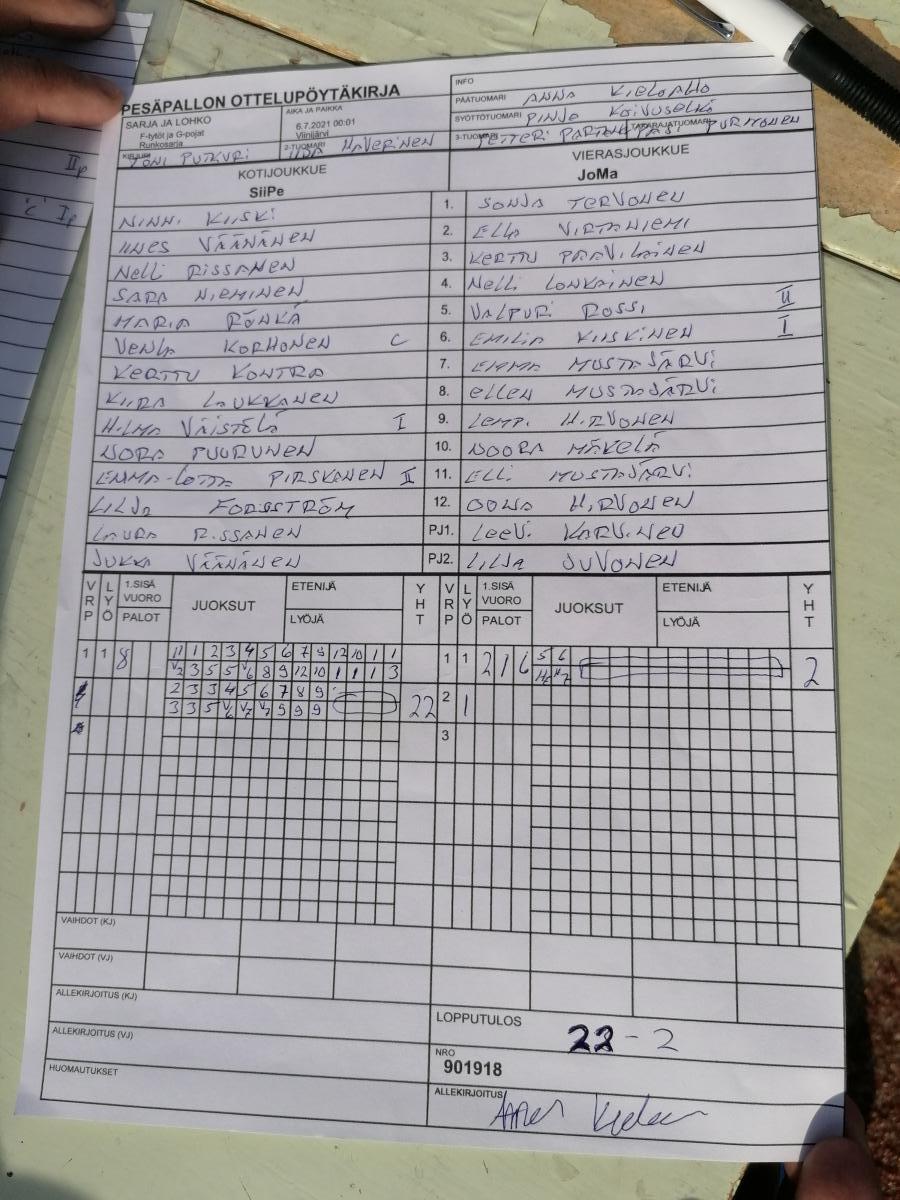 PESÄPALLON OTTELUPÖYTÄKIRJA
INFO
SARJA JA LOHKO
F-tytöt ja G-pojat
Runkosarja
AIKA JA PAIKKA
6.7.2021 00:01
Viinijärvi
PÄÄTUOMARI ANNA KIELOAHO
SYÖTTÖTUOMARI PINJA KOIVUSELKÄ
TAKARAJATUOMARI
KIRJURI TONI PUTKURI
2-TUOMARI IIDA HAVERINEN
3-TUOMARI PETTERI PURMONEN
KOTIJOUKKUE
SiiPe
VIERASJOUKKUE
JoMa
NINNI KIISKI 1. SONJA TERVONEN
IINES VÄÄNÄNEN 2. ELLA VIRTANIEMI
NELLI RISSANEN 3. KERTTU PAAVILAINEN
SARA NIEMINEN 4. NELLI LOUKAINEN
MARIA RÖNKÄ 5. VALPURI ROSSI II
VENLA KORHONEN C 6. EMILIA KIISKINEN I
KERTTU KONTRA 7. EMMA MUSTAJÄRVI
KIIRA LAUKKANEN 8. ELLEN MUSTAJÄRVI
HILMA VÄISTÖLÄ I 9. LEMPI HIRVONEN
NORA PUURUNEN 10. NOORA MÄKELÄ
EMMA-LOTTA PIRSKANEN II 11. ELLI MUSTAJÄRVI
LILJA FORSSTRÖM 12. OONA HIRVONEN
LAURA RISSANEN PJ1. LEEVI KARVINEN
JUKKA VÄÄNÄNEN PJ2. LILJA JUVONEN
VRP LYÖ 1.SISÄ VUORO PALOT JUOKSUT ETENIJÄ LYÖJÄ YHT VRP LYÖ 1.SISÄ VUORO PALOT JUOKSUT ETENIJÄ LYÖJÄ YHT
1 1 8 11 1 2 3 4 5 6 7 9 12 10 1 1 1 1 2 1 6 5 6 2
V2 3 5 5 V6 8 9 12 10 1 1 1 3
2 3 3 4 5 6 7 8 9 22 2 1
3 3 5 V6 V7 V7 9 9 9
3
VAIHDOT (KJ)
VAIHDOT (VJ)
ALLEKIRJOITUS (KJ)
ALLEKIRJOITUS (VJ)
HUOMAUTUKSET
LOPPUTULOS
22 - 2
NRO
901918
ALLEKIRJOITUS